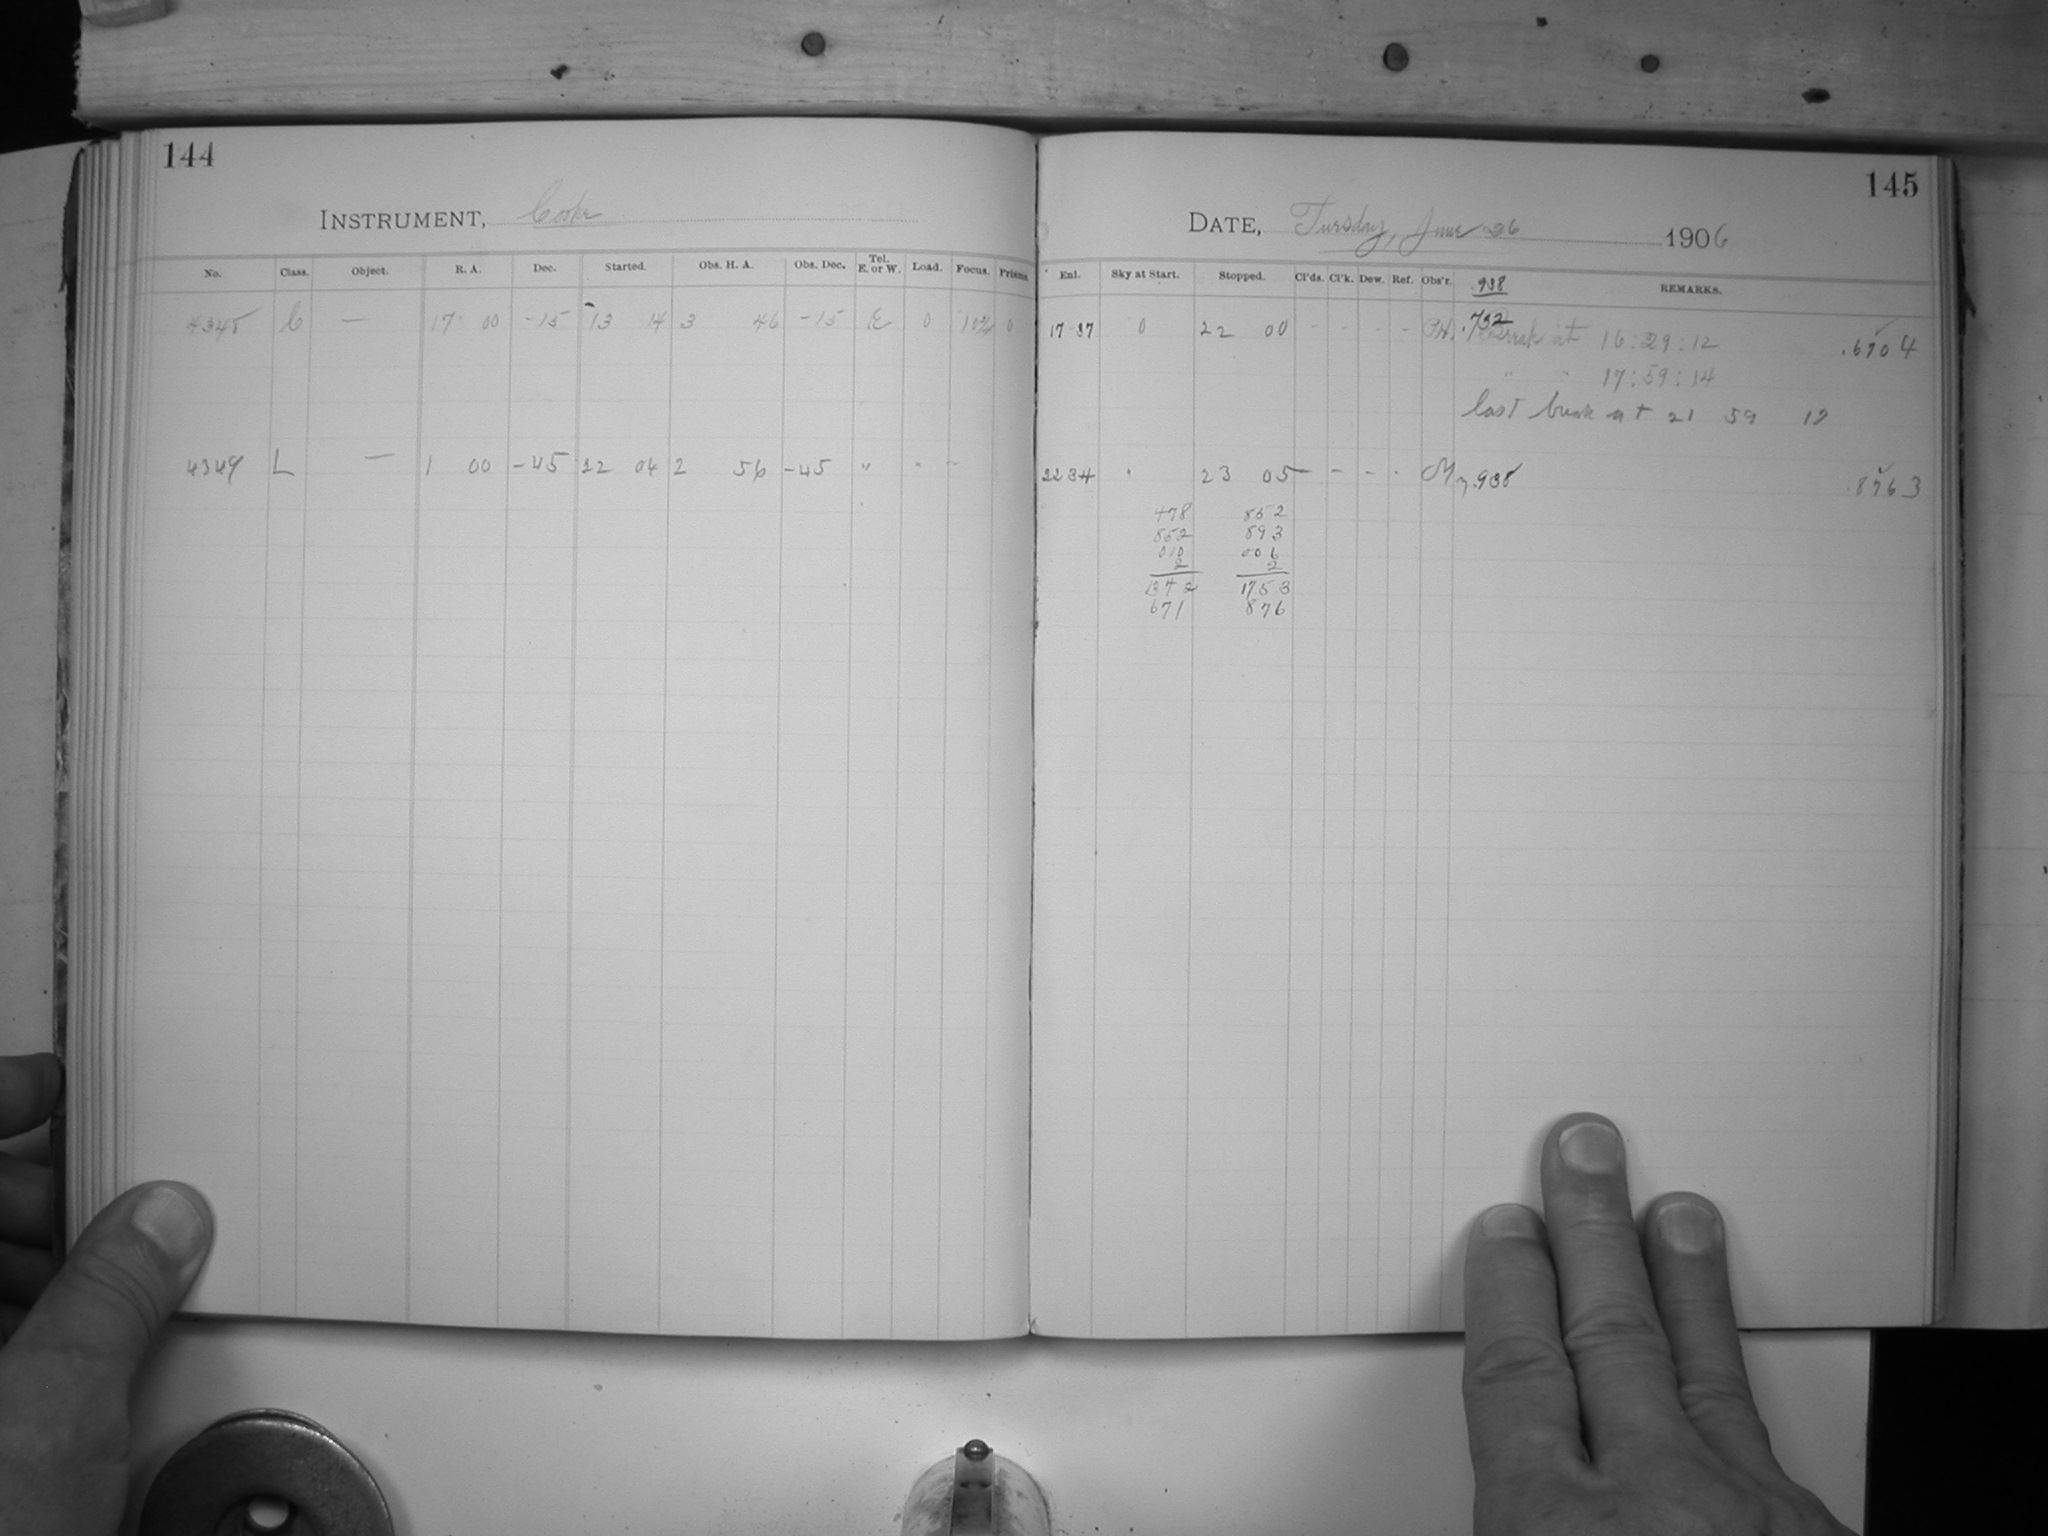 144
INSTRUMENT, Cooke
No. Class. Object. R. A. Dec. Started. Obs. H. A. Obs. Dec. Tel. E. or W. Load. Focus. Prisms
4348 C — 17 00 -15 13 14 3 46 -15 E 0 0
4349 L — 1 00 -45 22 04 2 56 -45 " " "
145
DATE, Tuesday, June 26 1906
Enl. Sky at Start. Stopped. Cl'ds. Cl'k. Dew. Ref. Obs'r. .938 REMARKS.
17 37 0 22 00 - - - - .732 Break at 16:29:12 .6704
" " 17:59:14
last break at 21 59 12
22 34 " 23 05 - - - - .938 .8763
478 862
852 893
010 006
2 2
1342 1753
671 876